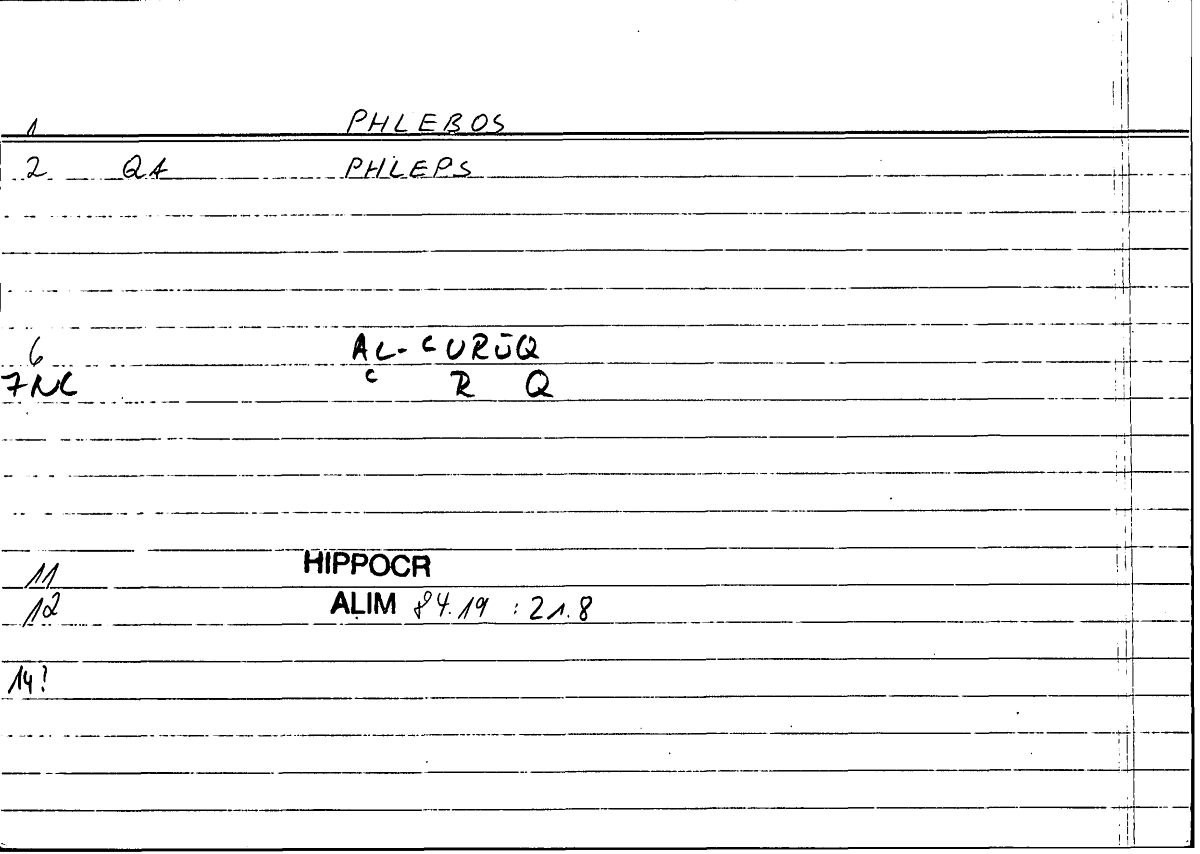 1 PHLEBOS
2 QA PHLEPS
6 AL-ʿURŪQ
7NC ʿ R Q
11 HIPPOCR
12 ALIM 84.19 : 21.8
14?